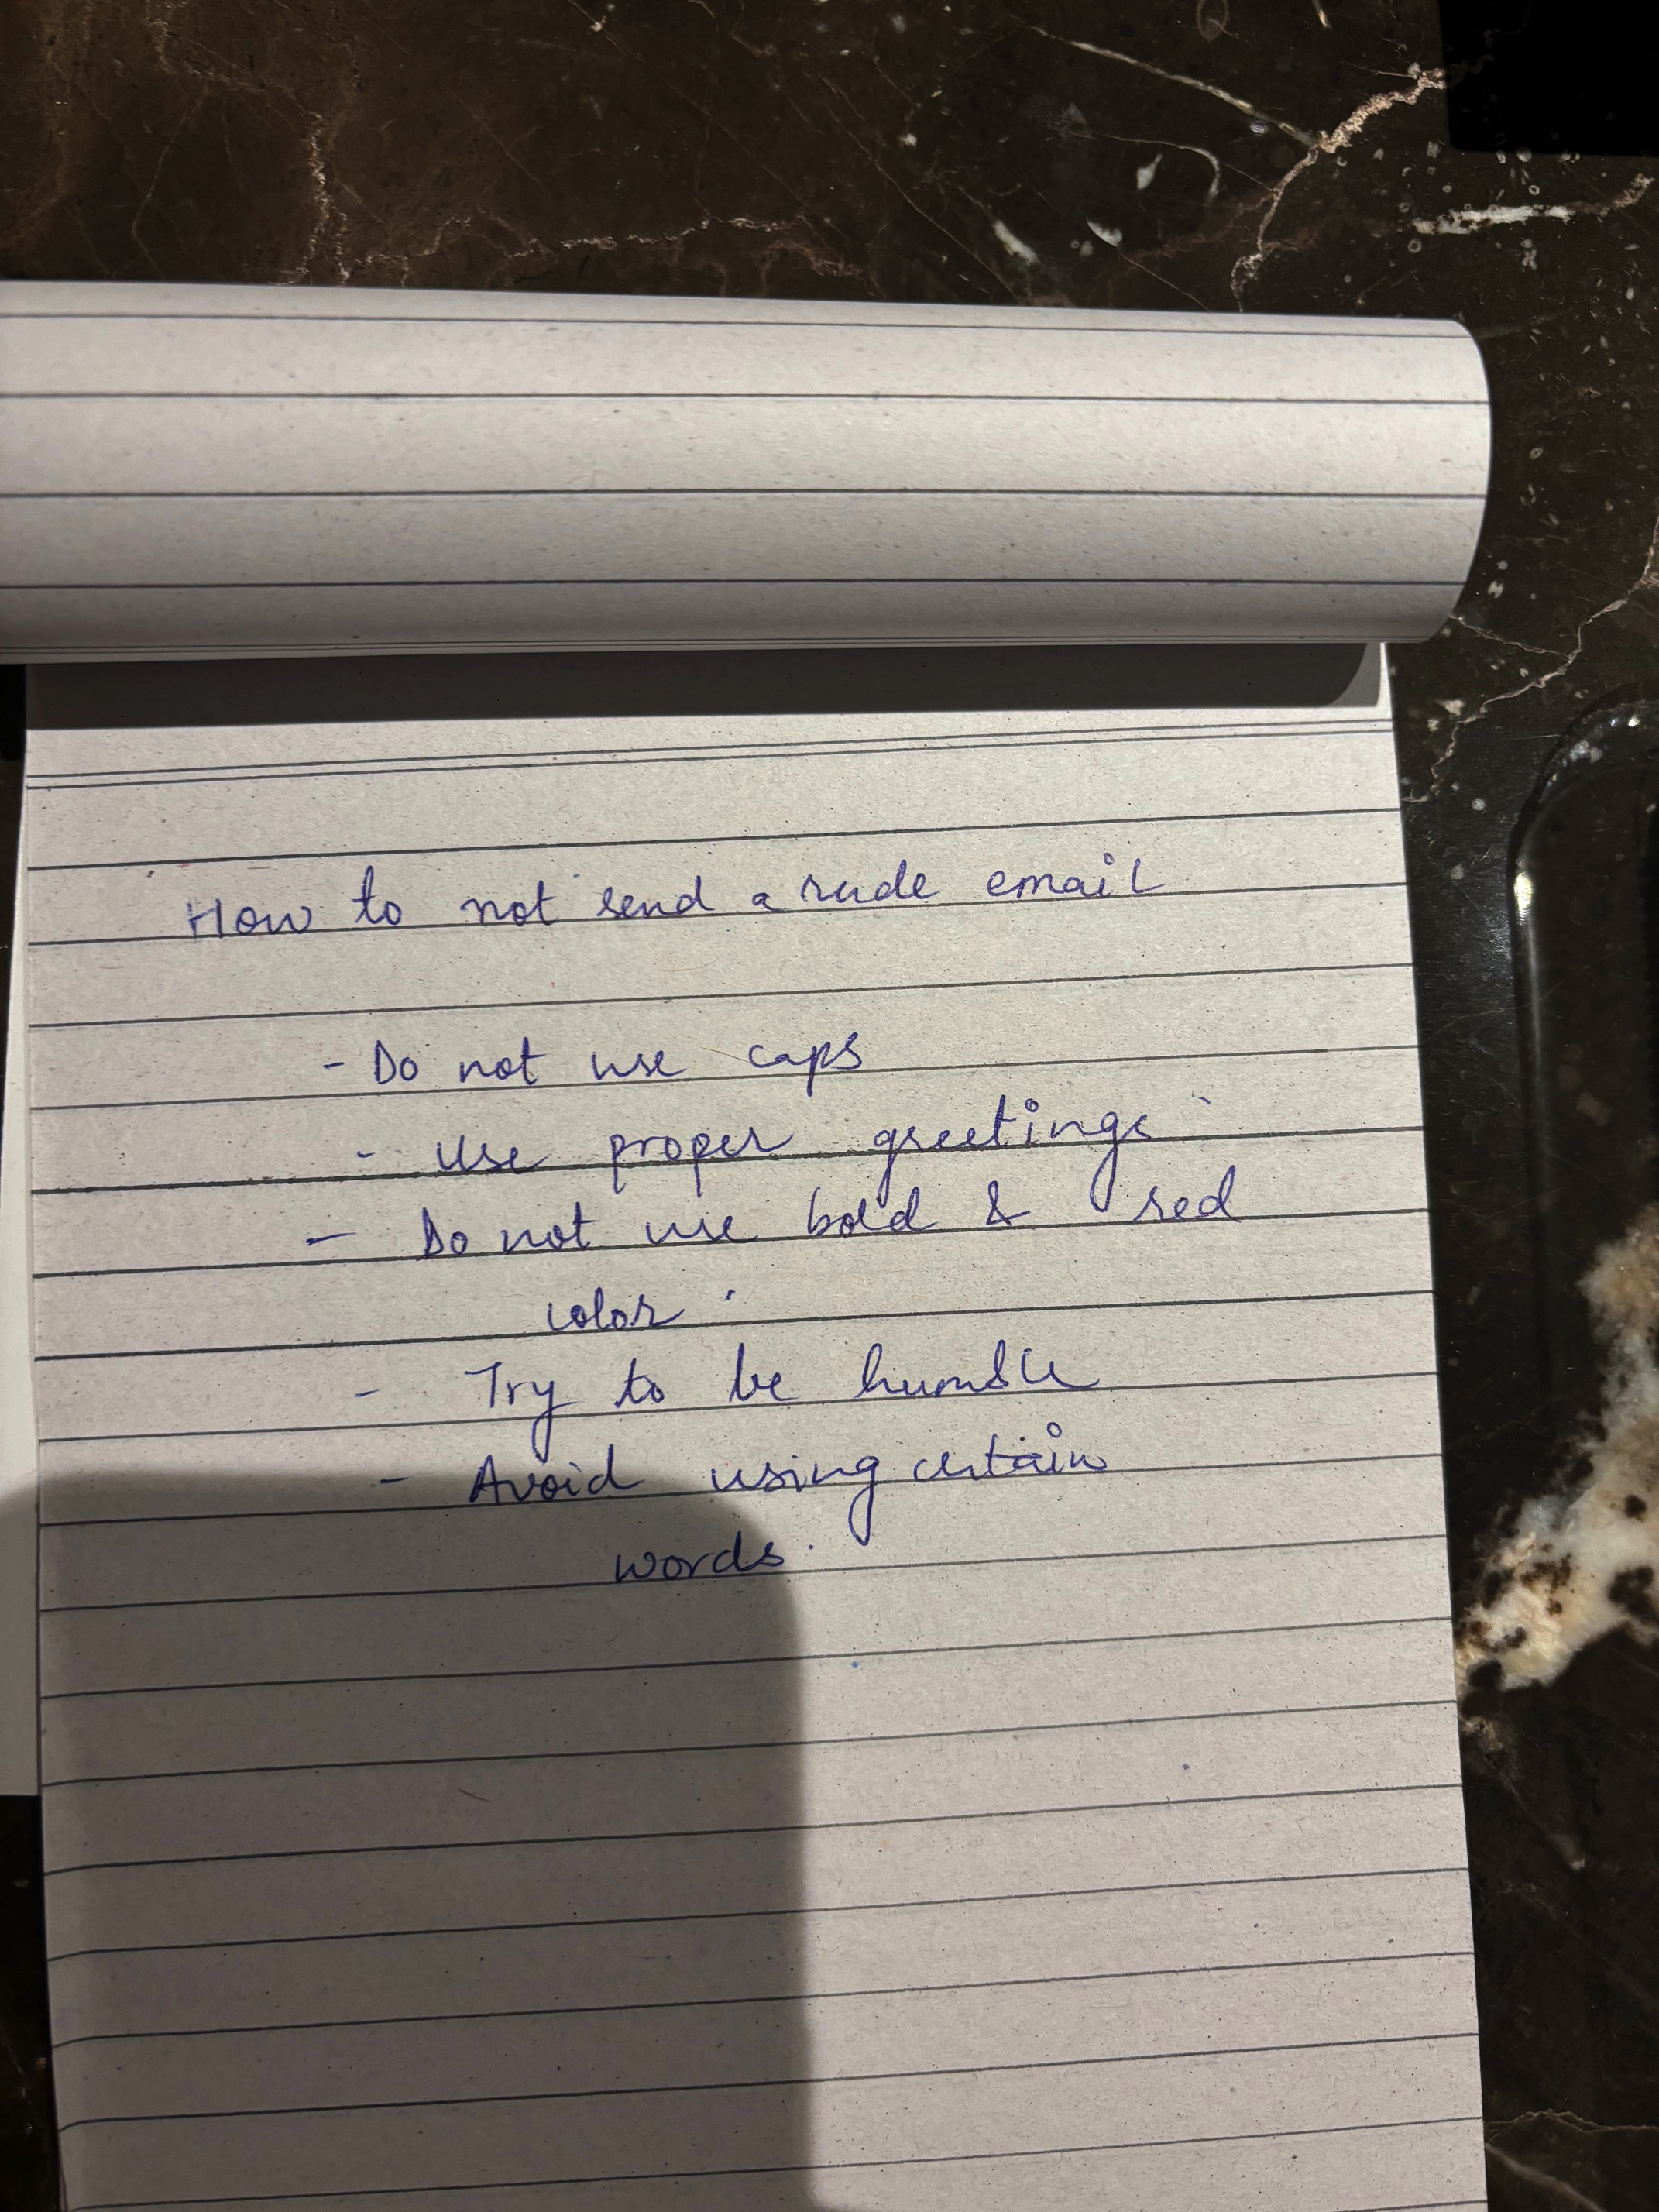 How to not send a rude email
- Do not use caps
- Use proper greetings
- Do not use bold & red
color.
- Try to be humble
- Avoid using certain
words.